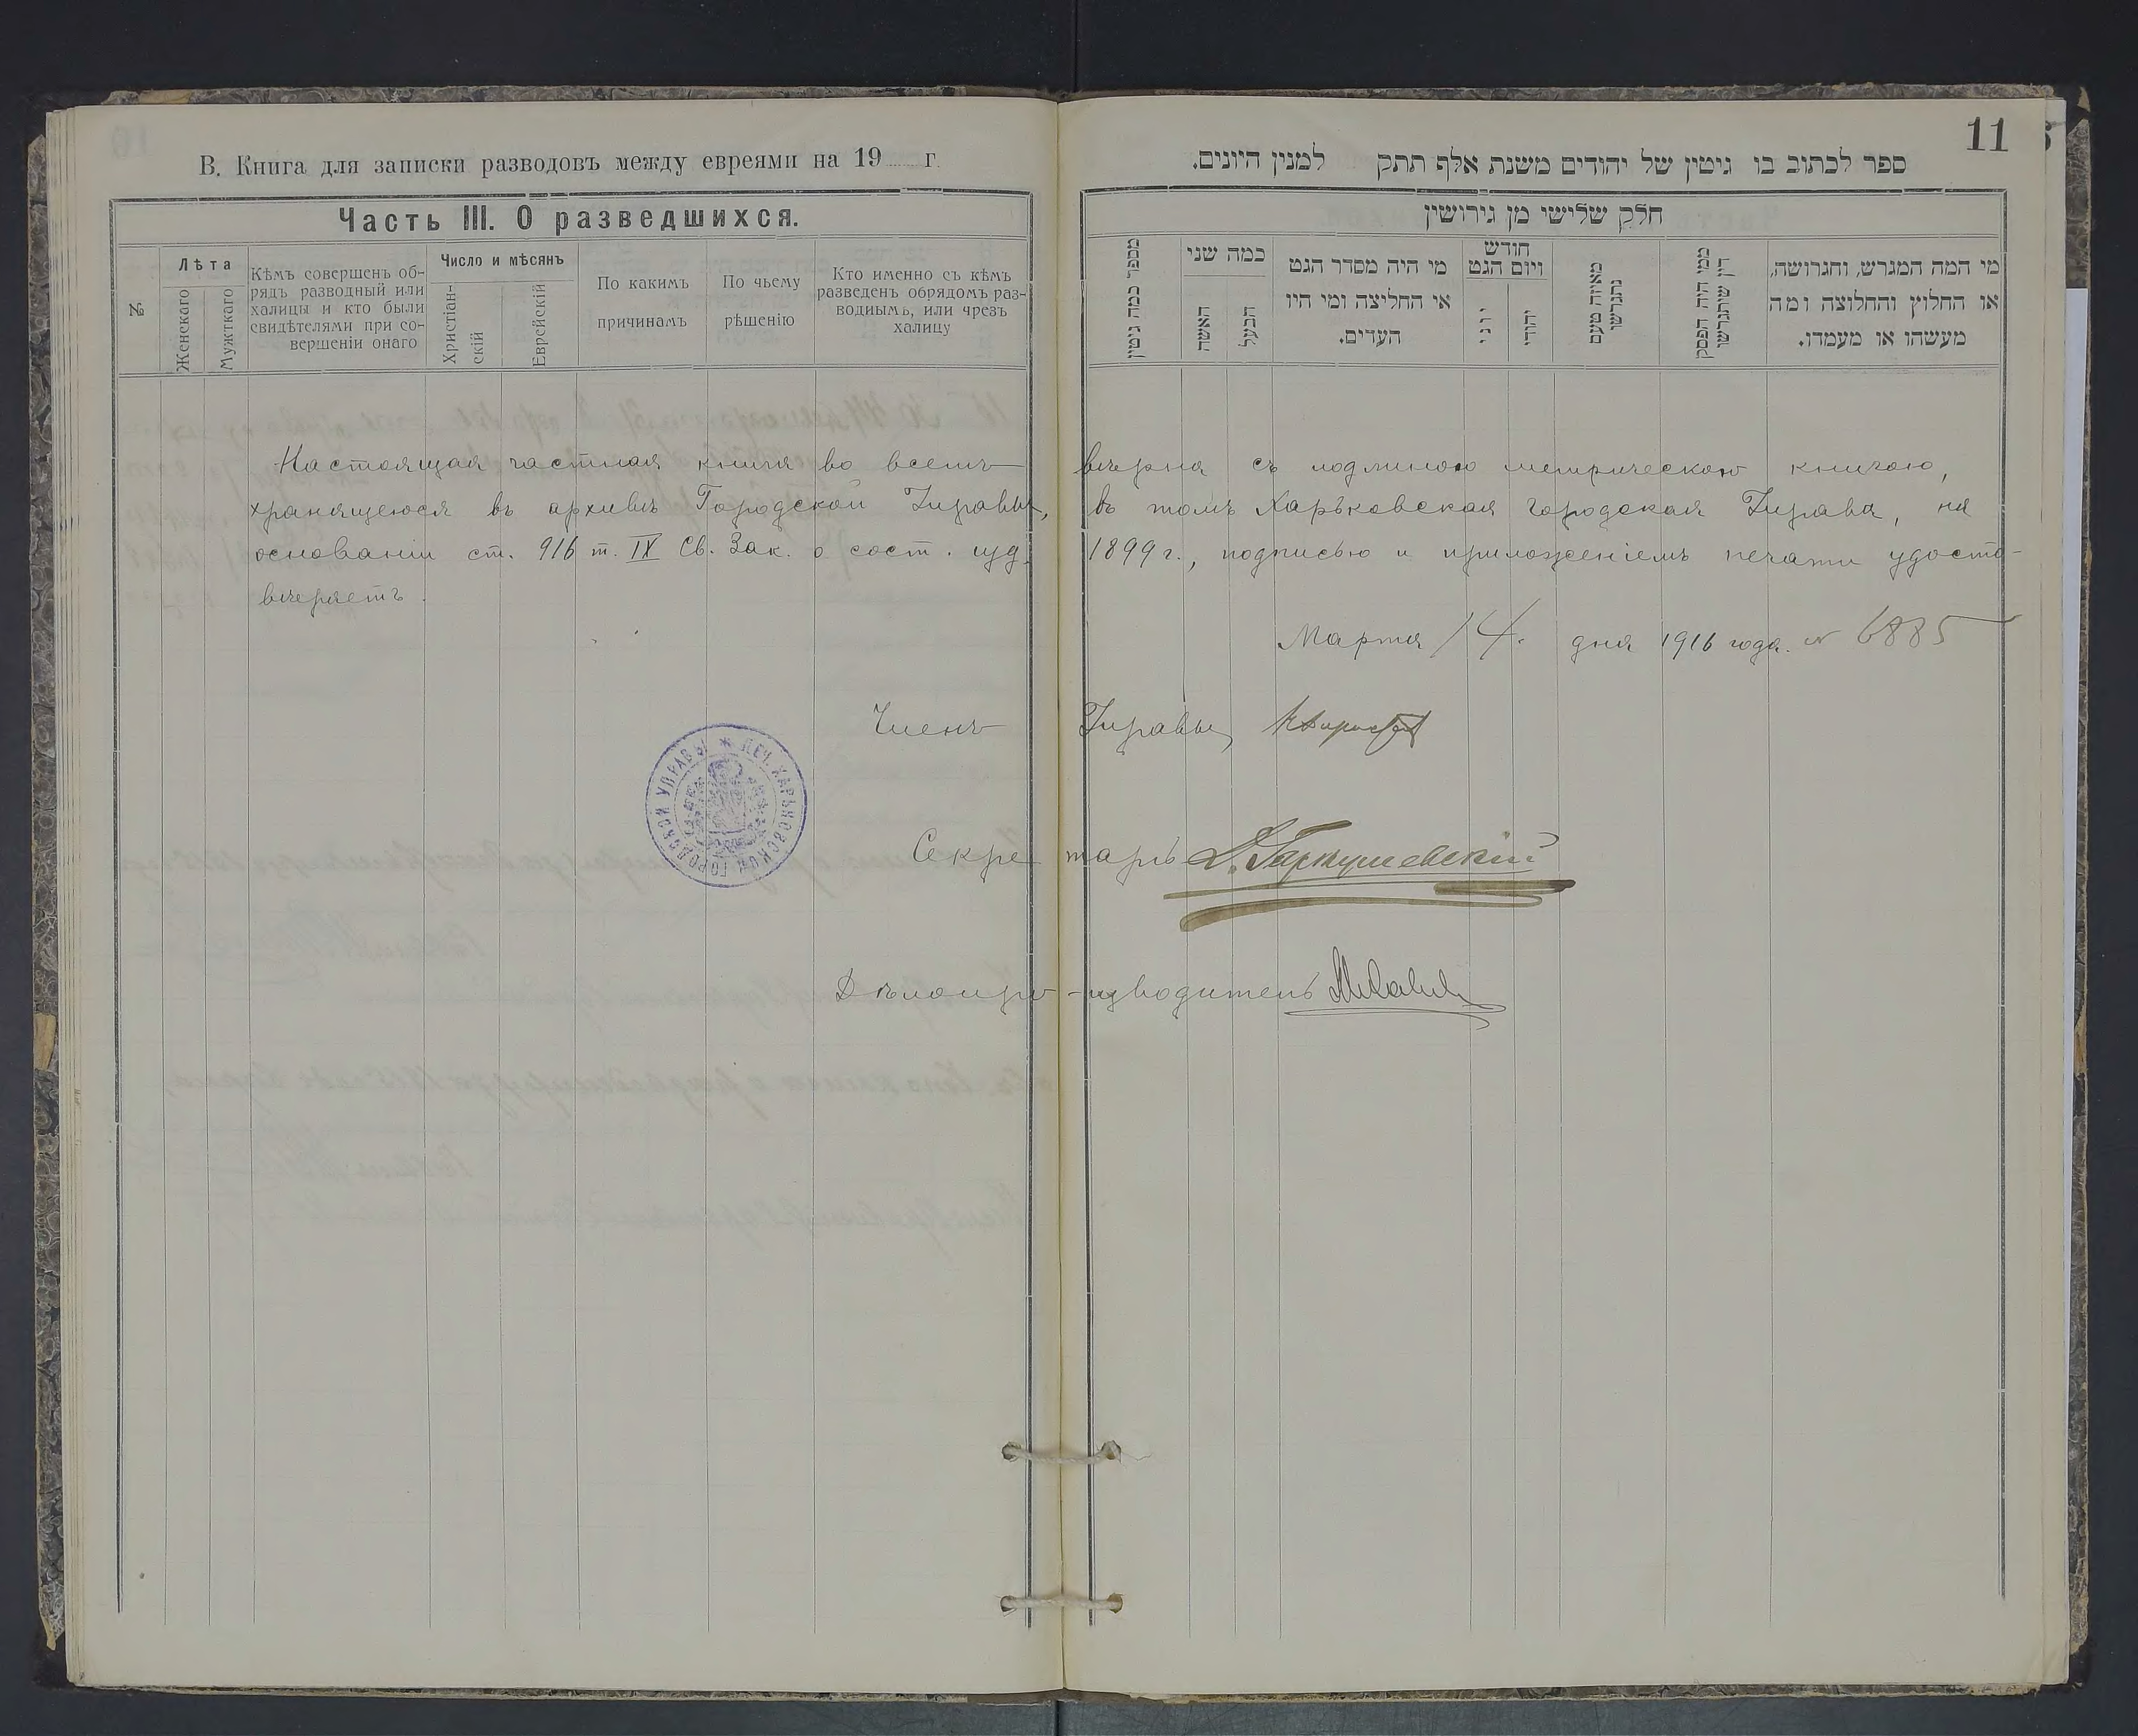 11
В. Книга для записки разводовъ между евреями на 19 г.
Часть III. О разведшихся.
№
Лѣта
Женскаго
Мужткаго
Кѣмъ совершенъ об-
рядъ разводный или
халицы и кто были
свидѣтелями при со-
вершеніи онаго
Число и мѣсянъ
Христіан-
скій
Еврейскій
По какимъ
причинамъ
По чьему
рѣшенію
Кто именно съ кѣмъ
разведенъ обрядомъ раз-
водиымъ, или чрезъ
халицу
ספר לכתוב בו גיטין של יהודים משנת אלף תתק למנין היונים.
חלק שלישי מן גירושין
מספר כמה גיטין
כמה שני
האשה
הבעל
מי היה מסדר הגט
או החליצה ומי היו
העדים.
חודש
ויום הגט
יוני
יהודי
מאיזה טעם
נתגרשו
ממי היה הפסק
דין שיתגרשו
מי המה המגרש, והגרושה,
או החלוץ והחלוצה ומה
מעשהו או מעמדו.
Настоящая частная книга во всемъ вѣрна съ подлиною метрическою книгою,
хранящеюся въ архивѣ Городской Управы, въ томъ Харьковская Городская Управа, на
основаніи ст. 916 т. IX Св. Зак. о сост. изд. 1899 г., подписью и приложеніемъ печати удосто-
вѣряетъ.
Марта 14. дня 1916 года. № 6885
Членъ Управы
ПЕЧ. ХАРЬКОВСКОЙ ГОРОДСКОЙ УПРАВЫ
Секретарь
Дѣлопро-изводитель